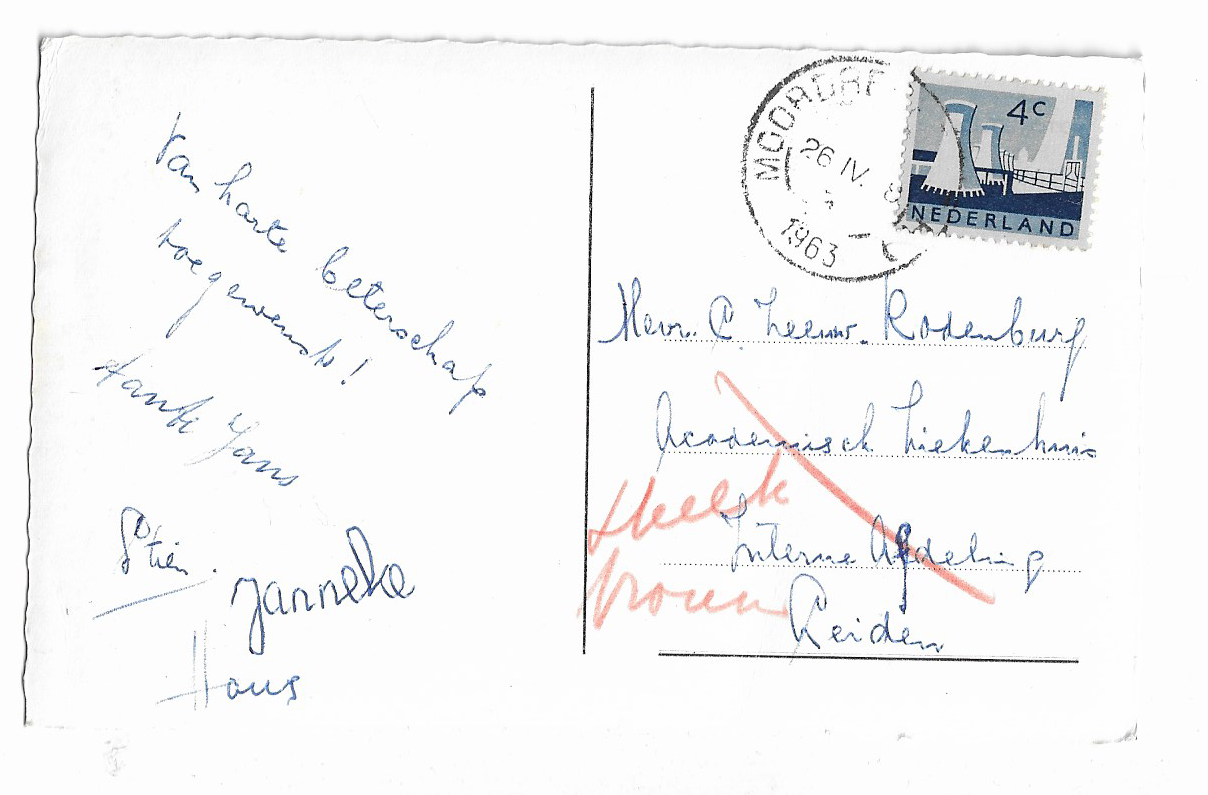 Van harte beterschap
toegewenst!
tante Jans
Stien.
Janneke
Hans
4c
NEDERLAND
26 IV. 8
1963
Mevr. C. Zeeuw. Rodenburg
Academisch Ziekenhuis
Interne Afdeling
Leiden
Heelk
vrouw